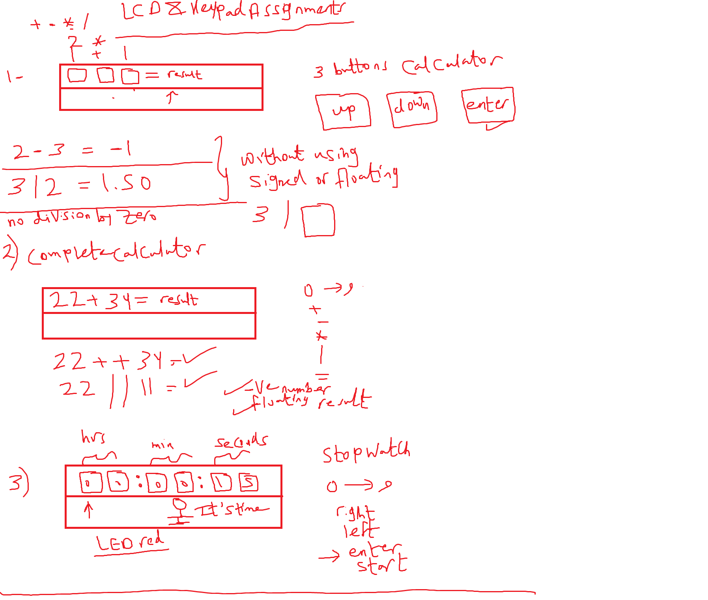 LCD & Keypad Assignments
+ - * /
2 * 1
+
1- = result
3 buttons Calculator
up down enter
2 - 3 = -1
3 / 2 = 1.50
without using
signed or floating
no division by Zero
3 /
2) Complete Calculator
22 + 34 = result
0 → 9
+
-
*
/
=
22 + + 34 =
22 / / 11 =
-ve number
floating result
hrs min seconds
3) 0 : 0 0 : 1 5
It's time
LED red
Stop watch
0 → 9
right
left
→ enter
start